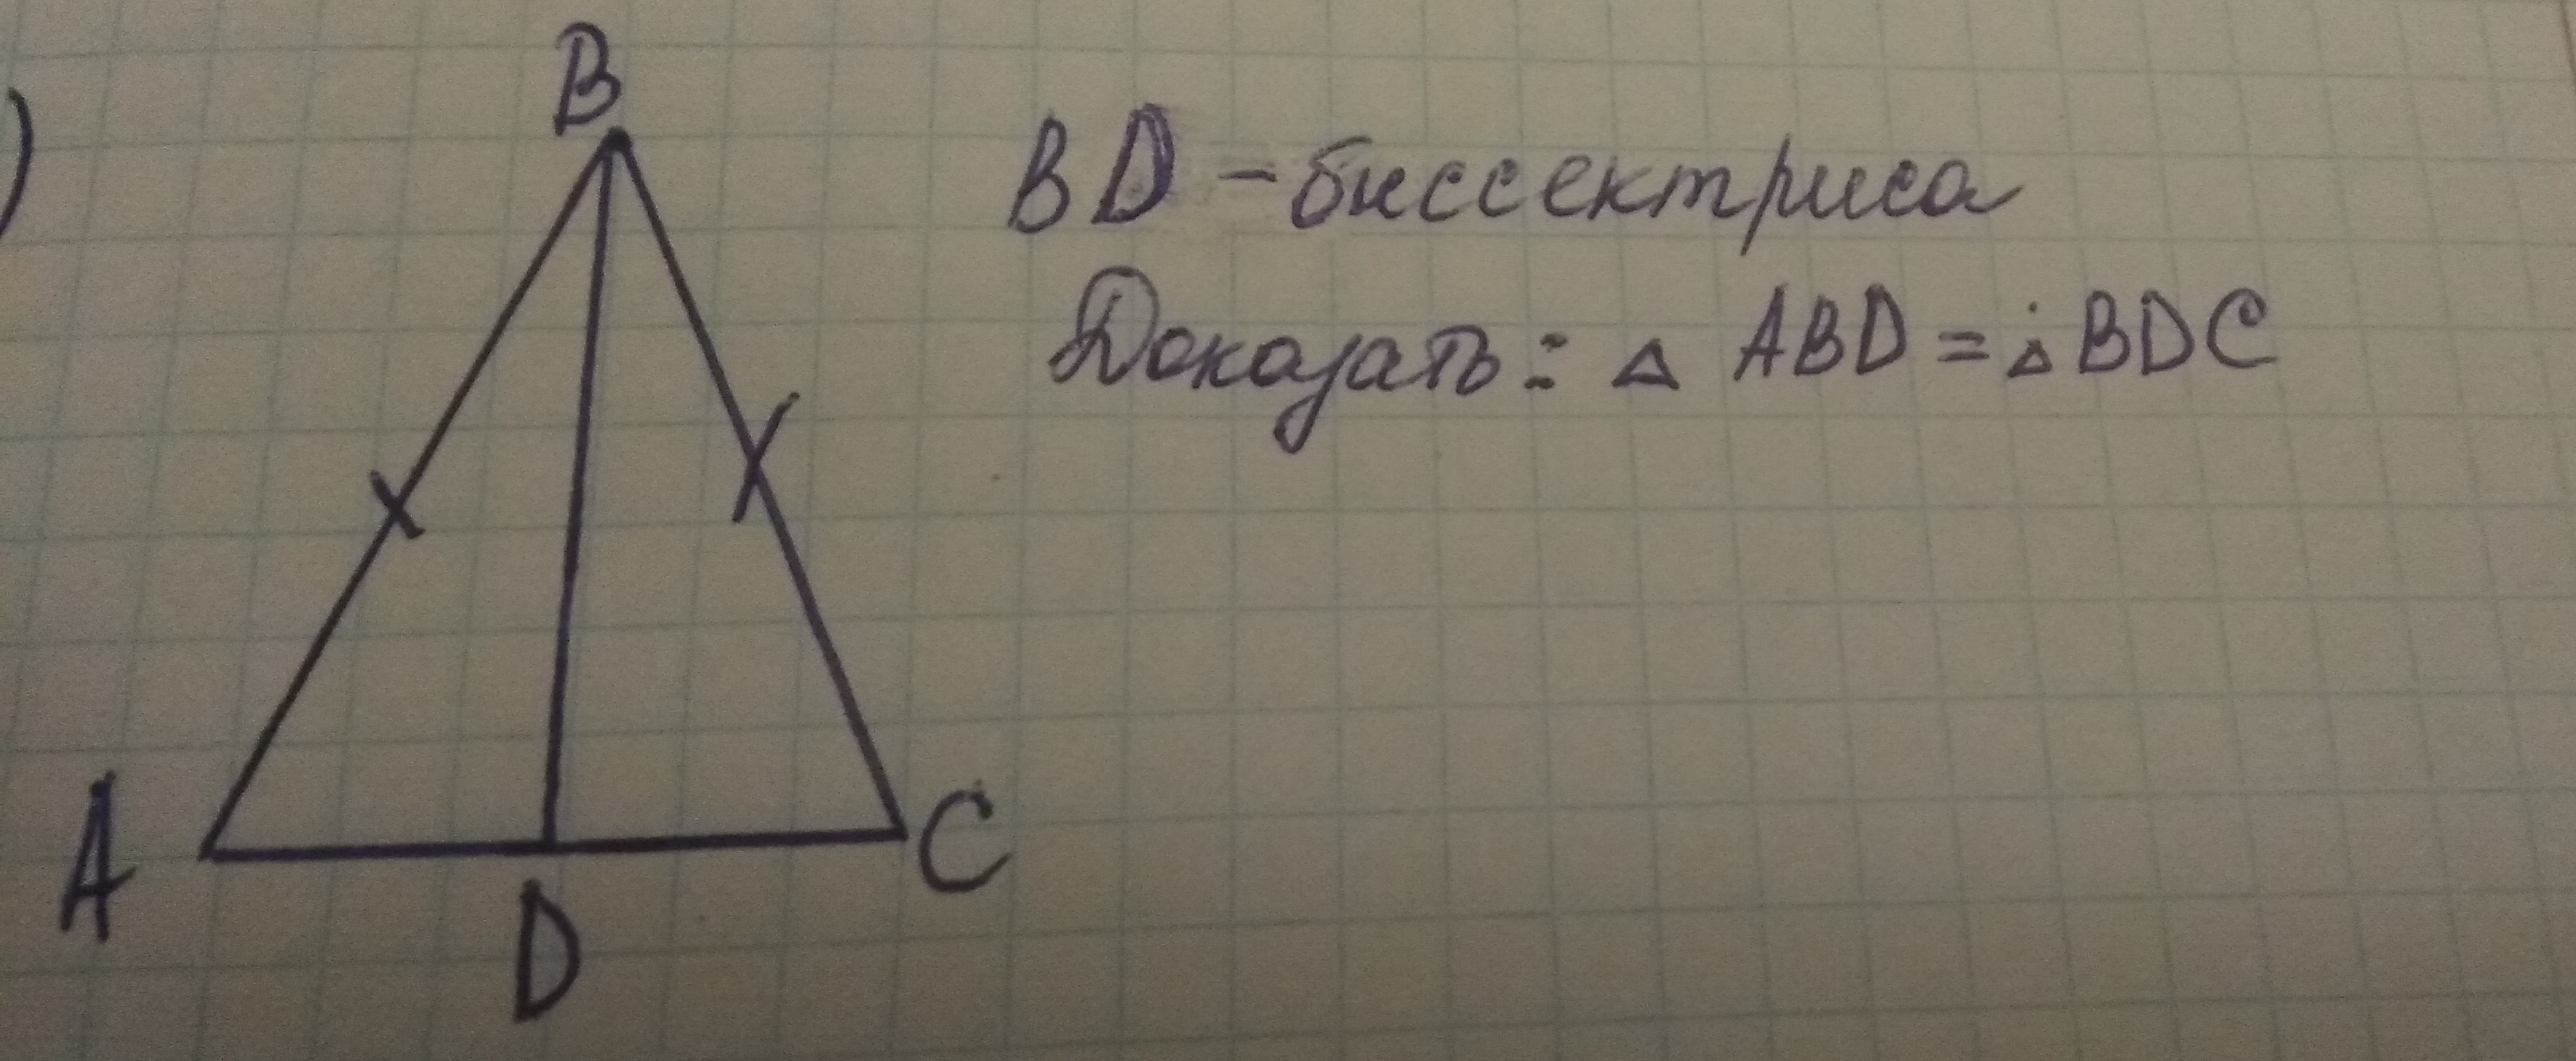 )
B
BD - биссектриса
Доказать: △ ABD = △ BDC
A
C
D